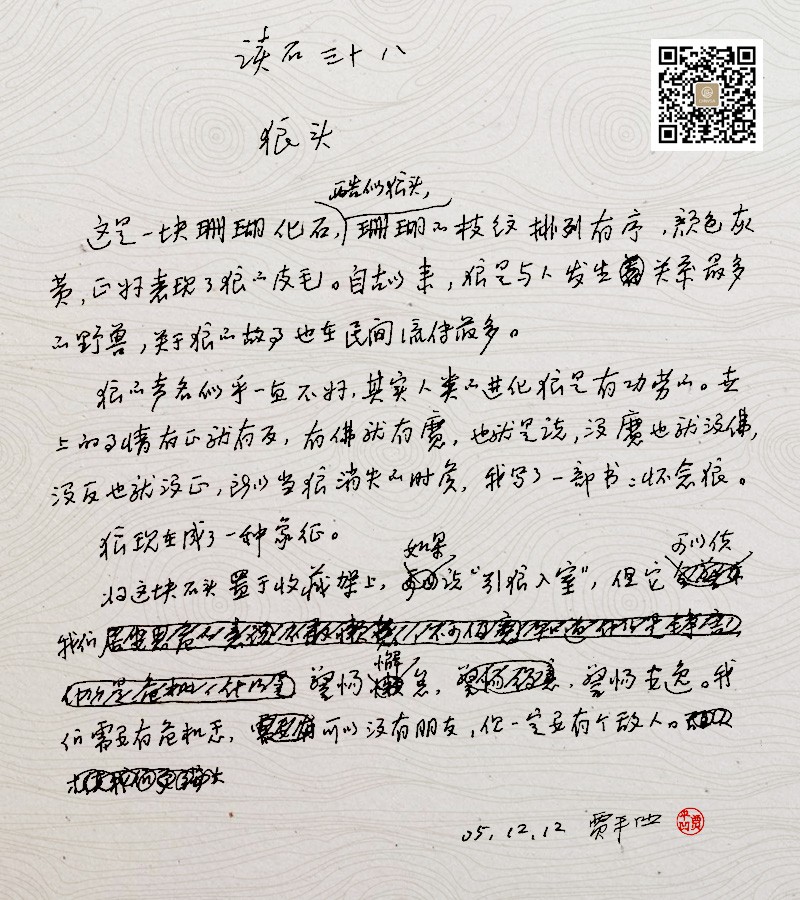 读石三十八
狼头
酷似狼头,
这是一块珊瑚化石,珊瑚的枝纹排列有序,颜色灰
黄,正好表现了狼的皮毛。自古以来,狼是与人发生关系最多
的野兽,关于狼的故事也在民间流传最多。
狼的声名似乎一直不好,其实人类的进化狼是有功劳的。世
上的事情有正就有反,有佛就有魔,也就是说,没魔也就没佛,
没反也就没正,所以当狼消失的时候,我写了一部书:怀念狼。
狼现在成了一种象征。
如果 可以使
将这块石头置于收藏架上,说“引狼入室”,但它
我们
懈
警惕怠,警惕安逸。我
们需要有危机感,可以没有朋友,但一定要有个敌人。
05.12.12 贾平凹
平凹
贾